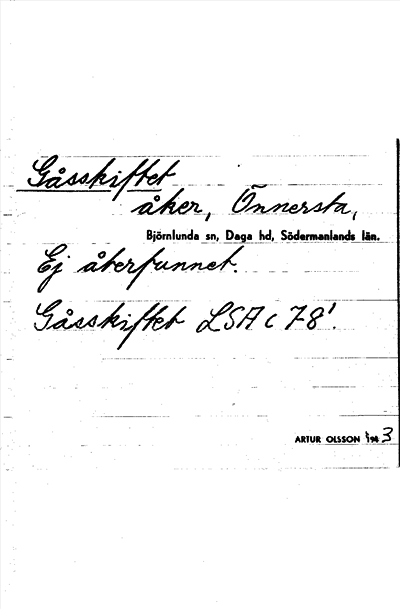 Gåsskiftet
åker, Önnersta,
Björnlunda sn, Daga hd, Södermanlands län.
Ej återfunnet.
Gåsskiftet LSA C 7-8¹.
ARTUR OLSSON 1943